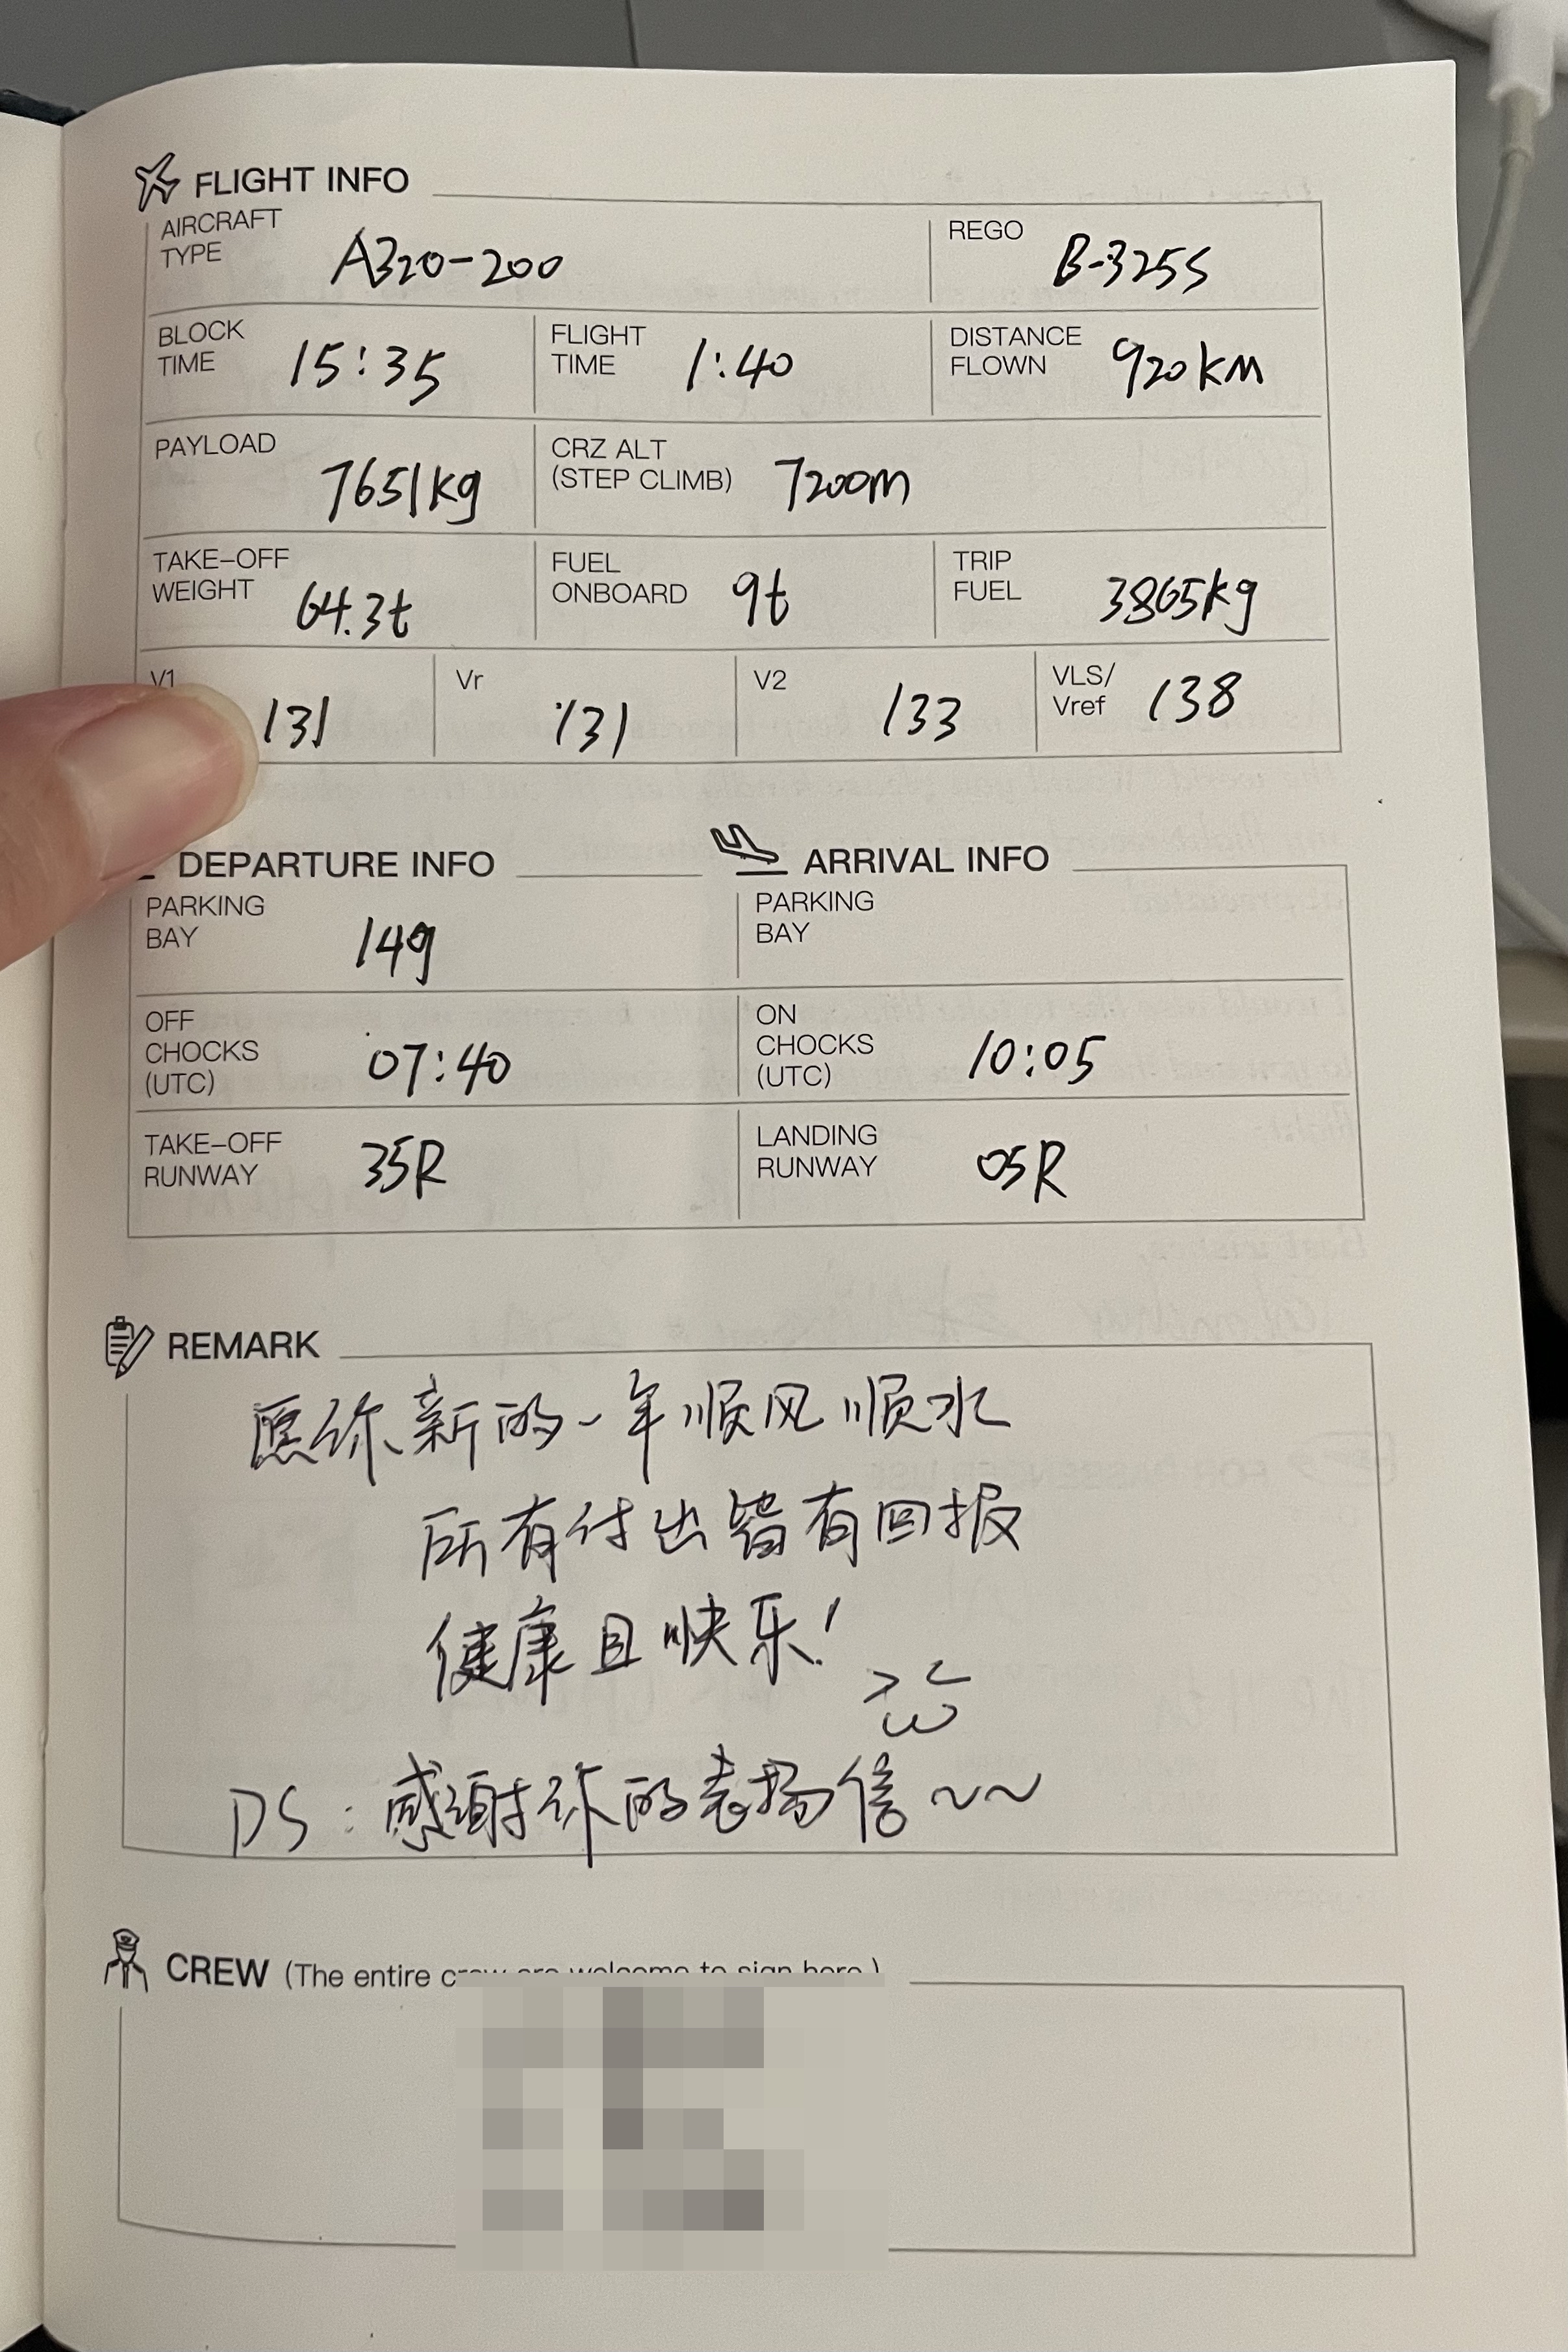 FLIGHT INFO
AIRCRAFT TYPE A320-200
REGO B-325S
BLOCK TIME 15:35
FLIGHT TIME 1:40
DISTANCE FLOWN 920KM
PAYLOAD 7651kg
CRZ ALT (STEP CLIMB) 7200m
TAKE-OFF WEIGHT 64.3t
FUEL ONBOARD 9t
TRIP FUEL 3865kg
V1 131
Vr 131
V2 133
VLS/Vref 138
DEPARTURE INFO
PARKING BAY 149
OFF CHOCKS (UTC) 07:40
TAKE-OFF RUNWAY 35R
ARRIVAL INFO
PARKING BAY
ON CHOCKS (UTC) 10:05
LANDING RUNWAY 05R
REMARK
愿你新的一年顺风顺水
所有付出皆有回报
健康且快乐!
>ω<
DS:感谢你的表扬信~~
CREW (The entire crew are welcome to sign here.)